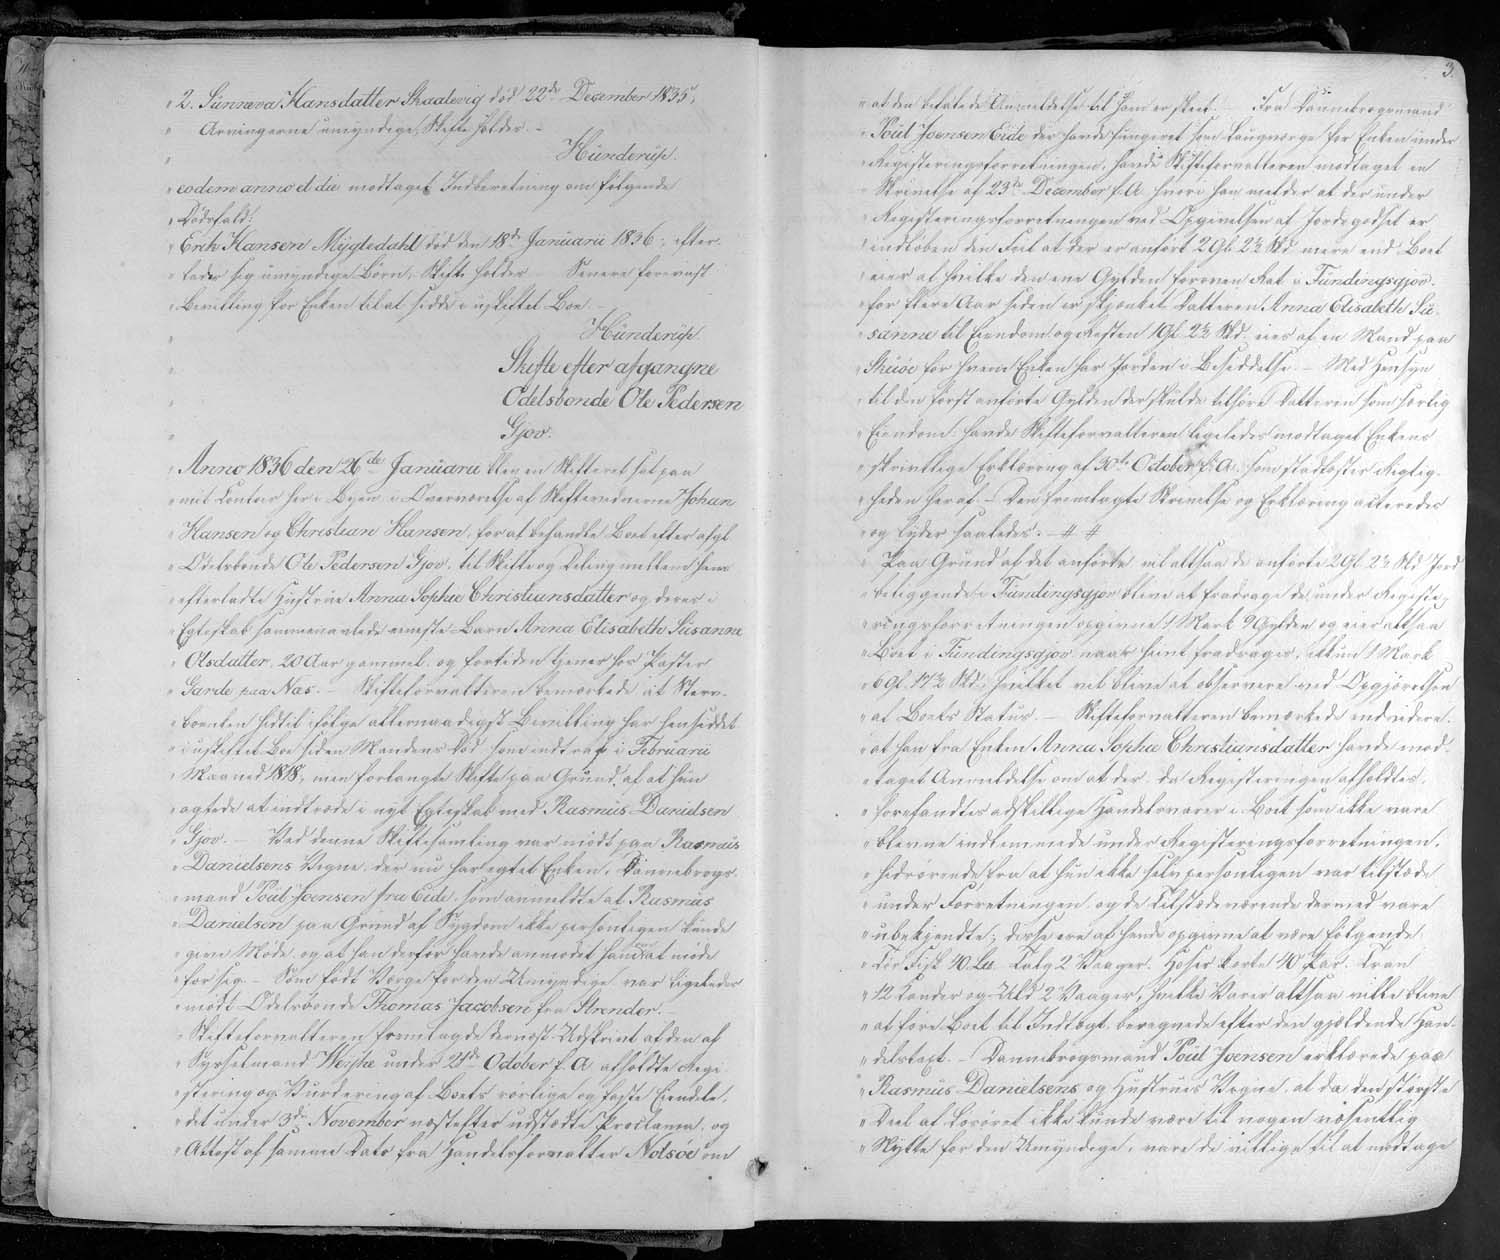 2. Sünneva Hansdatter Skaalevig død 22de December 1835,
Arvingerne umyndige, Skifte holdes. –
Hünderüp.
eodem anno et die modtaget Indberetning om følgende
Dødsfald:
Erik Hansen Mÿgledahl død den 18de Januarii 1836, efter-
lader sig umyndige Børn, Skifte holdes Senere forevist
Bevilling for Enken til at sidde i uskiftet Boe –
Hünderüp.
Skifte efter afgangne
Odelsbonde Ole Pedersen
Gjov.
Anno 1836 den 26de Januarii blev en Skifteret sat paa
mit Contoir her i Byen i Overværelse af Skiftevidnerne Johan
Hansen og Christian Hansen, for at behandle Boet efter afgl.
Odelsbonde Ole Pedersen Gjov, til Skifte og Deling mellem hans
efterladte Hustrue Anna Sophie Christiansdatter og deres i
Egteskab sammenavlede eeneste Barn Anna Elisabeth Süsanne
Olsdatter, 20 Aar gammel, og for tiden tjener hos Pastor
Garde paa Næs. – Skifteforvalteren bemærkede at Sterv-
boenken hidtil ifølge allernaadigst Bevilling har hensiddet
i uskiftet Boe siden Mandens Død som indtraf i Februarii
Maaned 1818, men forlangte Skifte paa Grund af at hun
agtede at indtræde i nyt Egteskab med Rasmus Danielsen
Gjov. – Ved denne Skiftesamling var mødt paa Rasmus
Danielsens Vegne, der nu har egtet Enken, Dannebrogs-
mand Poül Joensen fra Eide, som anmeldte at Rasmus
Danielsen paa Grund af Sygdom ikke personligen kunde
give Møde, og at han derfor havde anmodet ham at møde
for sig. – Som født Værge for den Umyndige var ligeledes
mødt Odelsbonde Thomas Jacobsen fra Strender. –
Skifteforvalteren fremlagde dernæst Udskrivt af den af
Sysselmand Weyhe under 21de October f. A. afholdte Regi-
stering og Vurdering af Boets rørlige og faste Eiendele,
det under 3de November næstefter udstædte Proclama, og
Attest af samme Dato fra Handelsforvalter Nolsöe om
3.
at den befalede Anmeldelse til ham er skeet. – Fra Dannebrogsmand
Poül Joensen Eide der havde fungeret som Laugværge for Enken under
Registeringsforretningen, havde Skifteforvalteren modtaget en
Skrivelse af 23de December f. A. hvori han melder at der under
Registeringsforretningen ved Opgivelsen af Jordegodset er
indløben den Feil at der er anført 2 Gl. 2½ Skd. mere end Boet
eier af hvilke den ene Gylden i Fündingsgjov
for flere Aar siden er skjænket Datteren Anna Elisabeth Sü-
sanne til Eiendom og Resten 1 Gl. 2½ Skd. eies af en Mand paa
Skuöe for hvem Enken har Jorden i Besiddelse. – Med Hensyn
til den først anførte Gylden der skulde tilhøre Datteren som særlig
Eiendom, havde Skifteforvalteren ligeledes modtaget Enkens
skrivtlige Erklæring af 30te October f. A. som stadfæster Rigtig-
heden heraf. – Den fremlagte Skrivelse og Erklæring acteredes
og lyder saaledes. – # #
Paa Grund af det anførte vil altsaa de anførte 2 Gl. 2½ Skd. Jord
beliggende i Fündingsgjov blive at fradrage de under Registe-
ringsforretningen opgivne 1 Mark 9 Gylden og eier altsaa
Boet i Fündingsgjov naar hiint fradrages, ikkun 1 Mark
6 Gl. 17½ Skd, hvilket vil blive at observere ved Opgjørelsen
af Boets Status. – Skifteforvalteren bemærkede endvidere
at han fra Enken Anna Sophie Christiansdatter havde mod-
taget Anmeldelse om at der, da Registeringen afholdtes,
forefandtes adskillige Handelsvarer i Boet som ikke vare
blevne indlemmede under Registeringsforretningen,
hidrørende fra at hun ikke selv personligen var tilstæde
under Forretningen, og de Tilstædeværende dermed vare
ubekjendte; disse ere af hende opgivne at være følgende
Tør Fisk 40 Lu Talg 2 Vaager. Hoser korte 40 Par. Tran
12 Kander og Uld 2 Vaager, hvilke Varer altsaa ville blive
at føre Boet til Indtægt, beregnede efter den gjældende Han-
delstaxt. – Dannebrogsmand Poül Joensen erklærede paa
Rasmus Danielsens og Hustrues Vegne, at da den største
Deel af Løsøret ikke kunde være til nogen væsentlig
Nytte for den Umyndige, vare de villige til at modtage